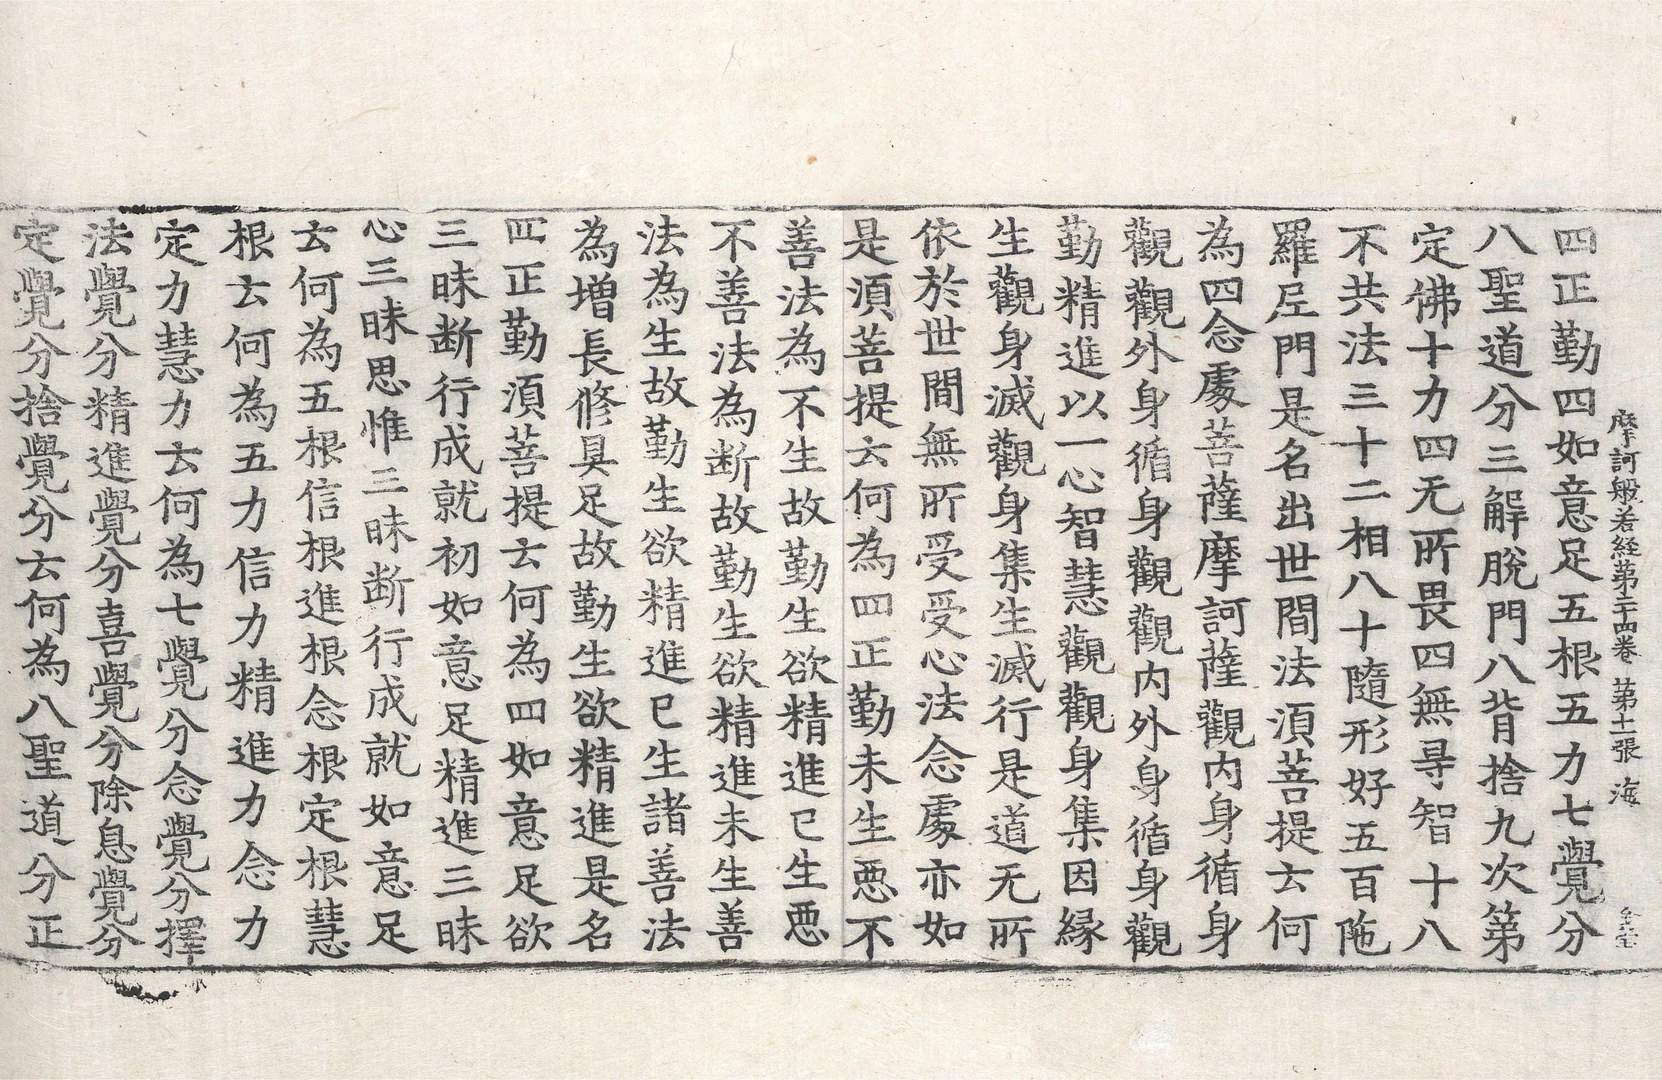 摩訶般若経第二十四卷 第十一張 海
四正勤四如意足五根五力七覺分
八聖道分三解脫門八背捨九次第
定佛十力四无所畏四無导智十八
不共法三十二相八十隨形好五百陁
羅尼門是名出世間法須菩提云何
為四念處菩薩摩訶薩觀内身循身
觀觀外身循身觀觀内外身循身觀
勤精進以一心智慧觀觀身集因緣
生觀身滅觀身集生滅行是道无所
依於世間無所受受心法念處亦如
是須菩提云何為四正勤未生惡不
善法為不生故勤生欲精進已生惡
不善法為断故勤生欲精進未生善
法為生故勤生欲精進已生諸善法
為增長修具足故勤生欲精進是名
四正勤須菩提云何為四如意足欲
三昧断行成就初如意足精進三昧
心三昧思惟三昧断行成就如意足
云何為五根信根進根念根定根慧
根云何為五力信力精進力念力
定力慧力云何為七覺分念覺分擇
法覺分精進覺分喜覺分除息覺分
定覺分捨覺分云何為八聖道分正